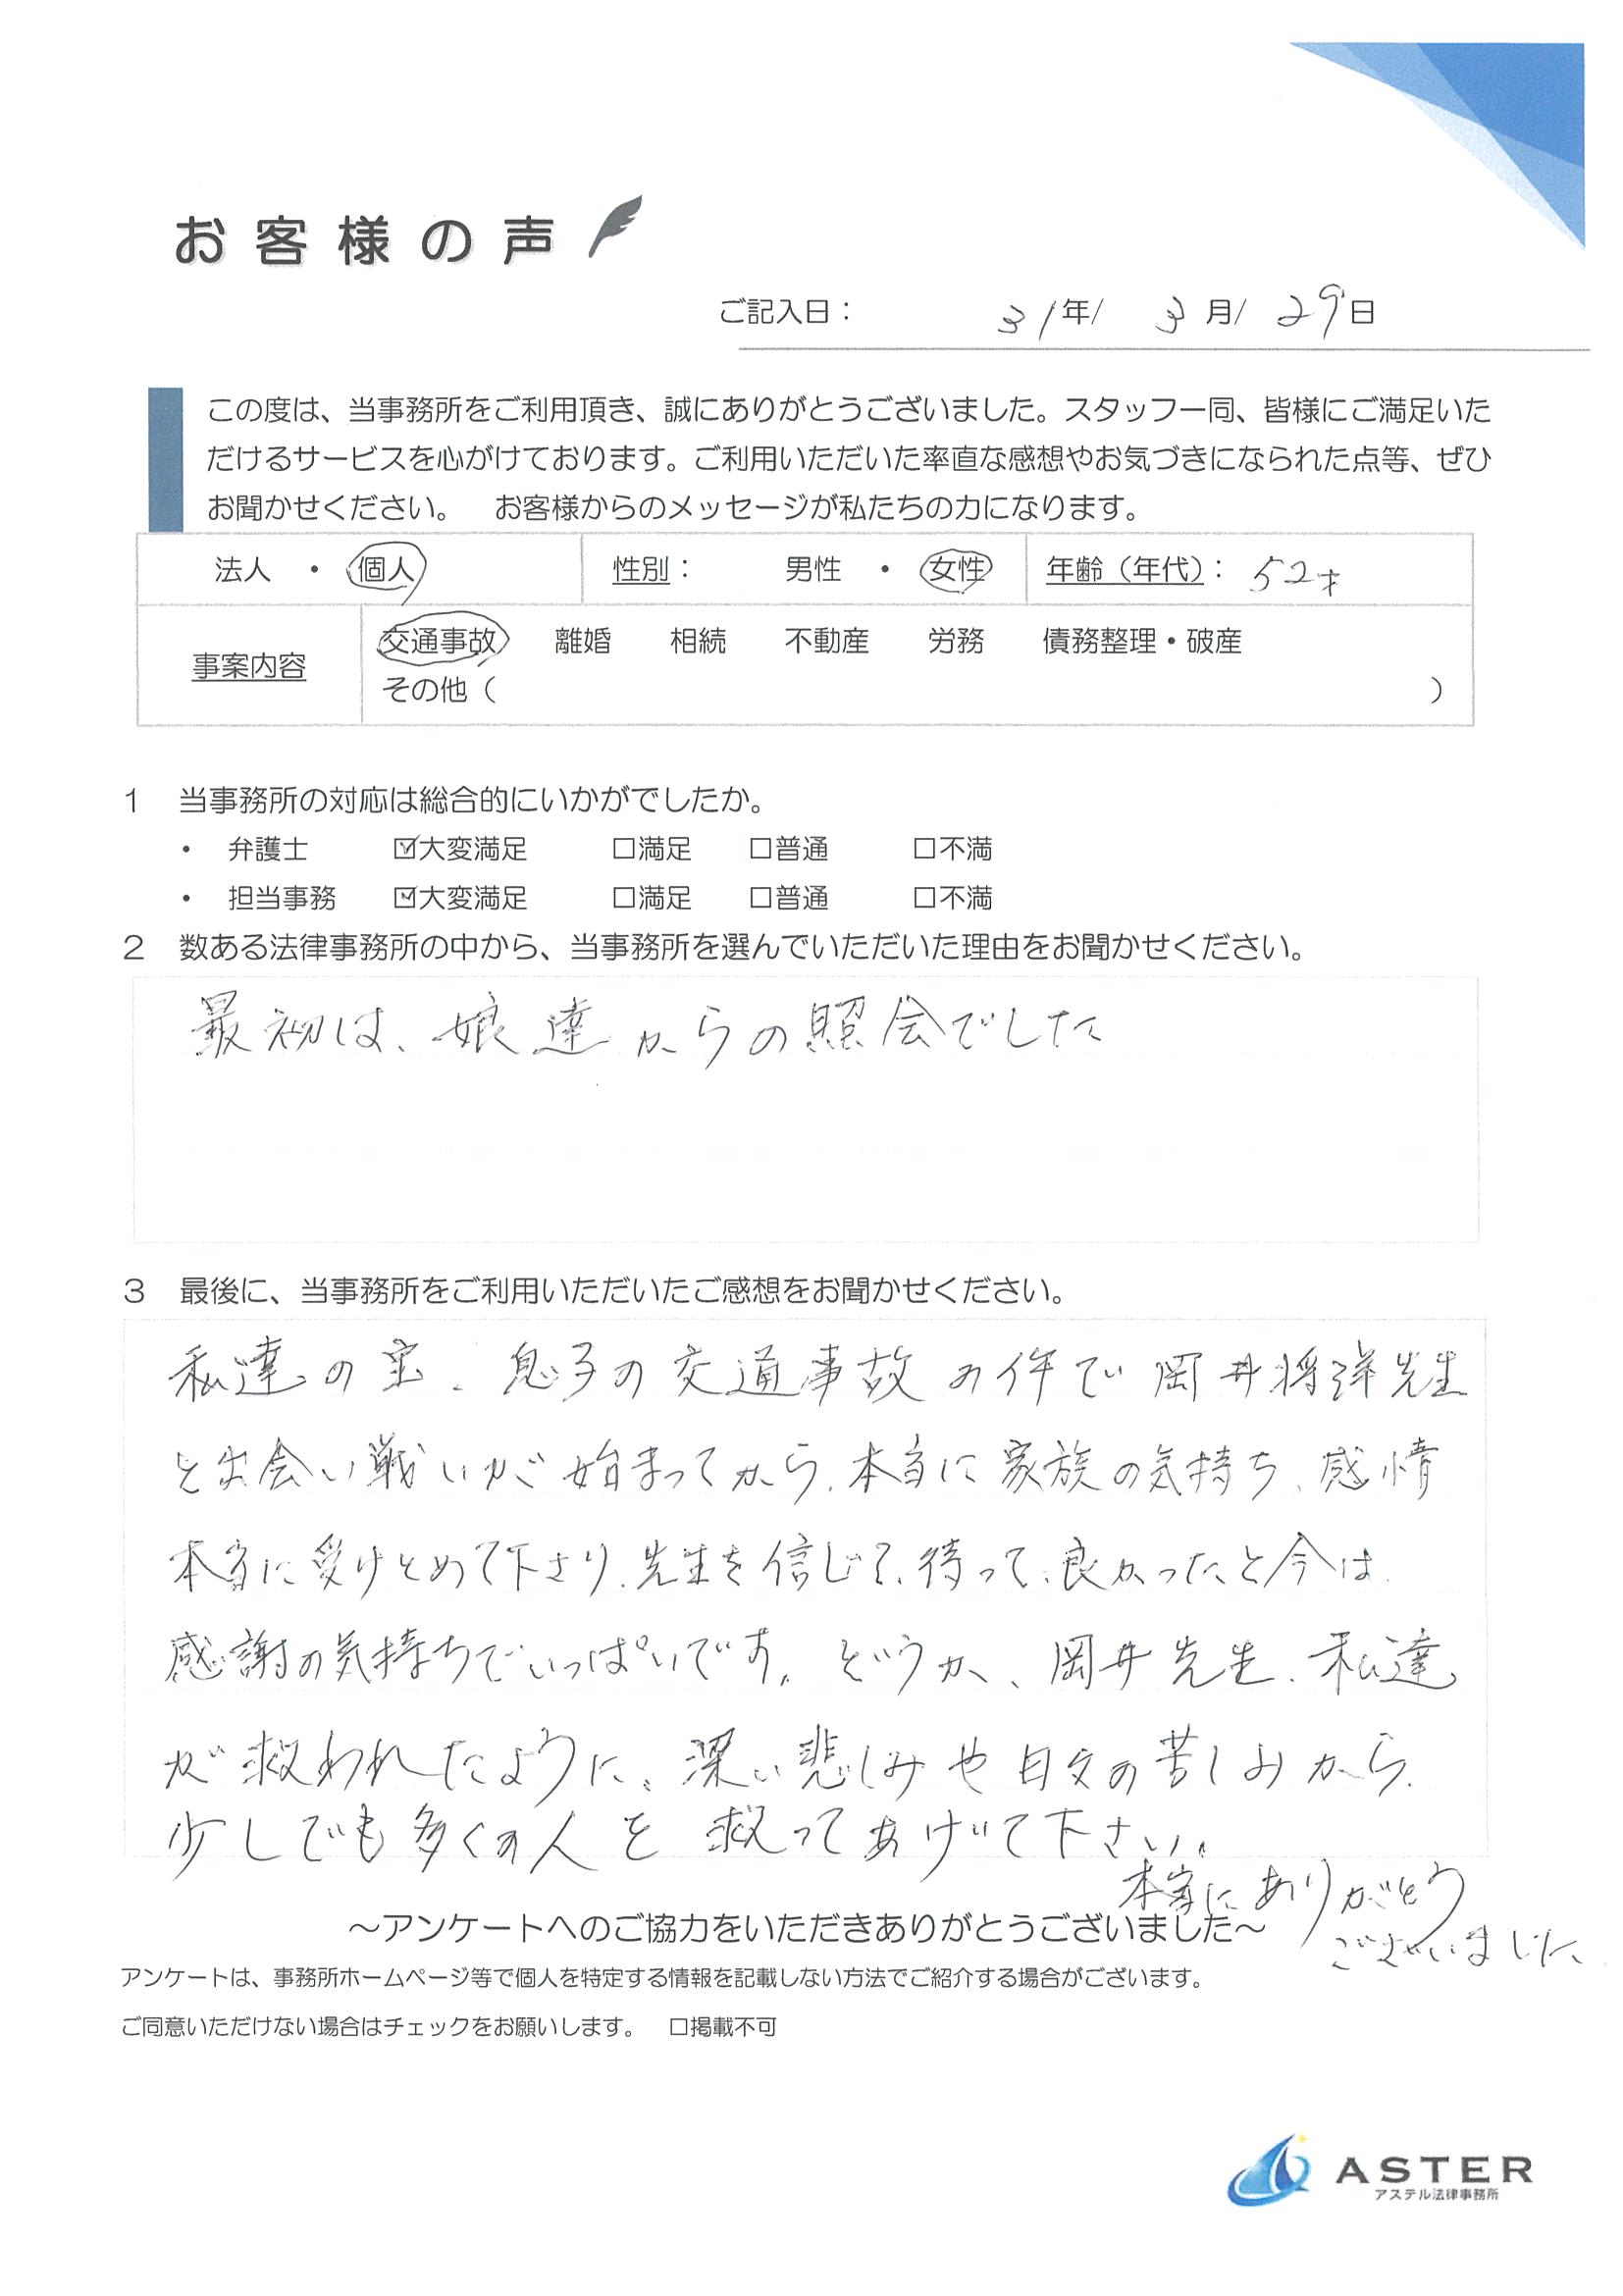 お客様の声
ご記入日： 31年/ 3月/ 29日
この度は、当事務所をご利用頂き、誠にありがとうございました。スタッフ一同、皆様にご満足いた
だけるサービスを心がけております。ご利用いただいた率直な感想やお気づきになられた点等、ぜひ
お聞かせください。　お客様からのメッセージが私たちの力になります。
法人 ・ 個人 性別： 男性 ・ 女性 年齢（年代）： 52才
事案内容 交通事故 離婚 相続 不動産 労務 債務整理・破産
その他（ ）
1 当事務所の対応は総合的にいかがでしたか。
・ 弁護士 ☑大変満足 □満足 □普通 □不満
・ 担当事務 ☑大変満足 □満足 □普通 □不満
2 数ある法律事務所の中から、当事務所を選んでいただいた理由をお聞かせください。
最初は、娘達からの照会でした
3 最後に、当事務所をご利用いただいたご感想をお聞かせください。
私達の宝、息子の交通事故の件で岡井将洋先生
と出会い戦いが始まってから、本当に家族の気持ち、感情
本当に受けとめて下さり、先生を信じて、待って、良かったと今は
感謝の気持ちでいっぱいです。どうか、岡井先生、私達
が救われたように、深い悲しみや日々の苦しみから、
少しでも多くの人を救ってあげて下さい。
本当にありがとう
ございました
～アンケートへのご協力をいただきありがとうございました～
アンケートは、事務所ホームページ等で個人を特定する情報を記載しない方法でご紹介する場合がございます。
ご同意いただけない場合はチェックをお願いします。　□掲載不可
ASTER
アステル法律事務所